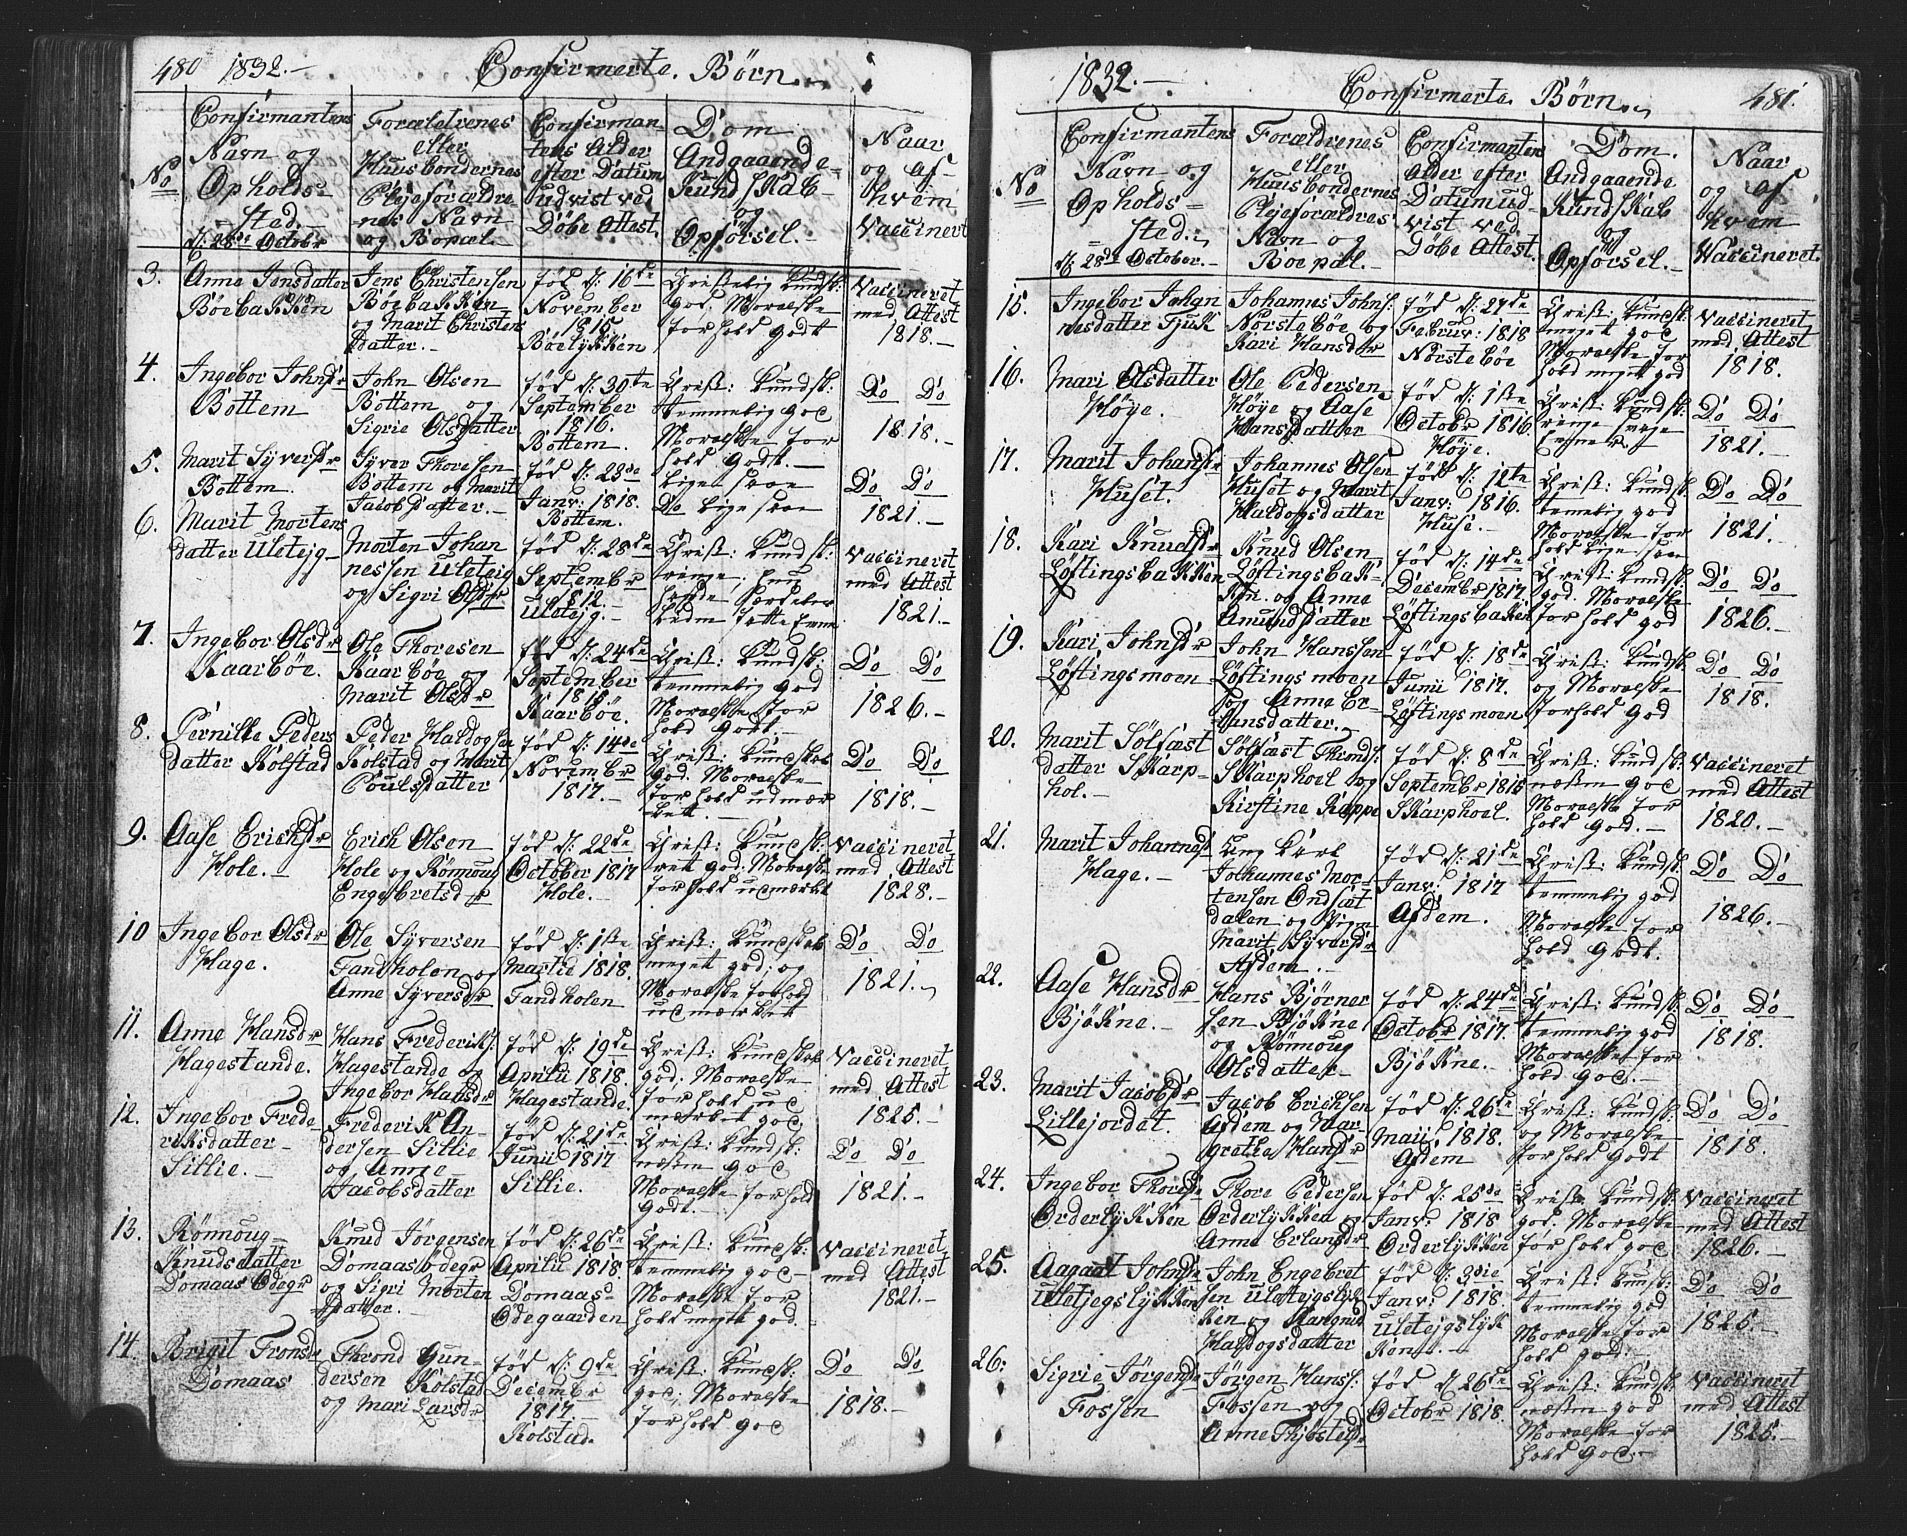 480 1832.- Confirmerte Børn.
No
Confirmantens
Navn og
Opholds-
sted.
d: 28de Octobr
Forældrenes
eller
Huusbondernes
Plejeforældre
nes Navn
og Bopæl.
Confirman-
tens Alder
efter Datum
udvist ved
Döbe Attest.
Dom
Andgaaende
Kundskab
og
Opförsel.-
Naar
og af
hvem
Vaccineret
3.
Anne Jensdatter
Böebakken
Jens Christensen
Böebakken
og Marit Christens
datter.-
föd d: 16de
November
1815
Böelykken
Christelig Kundsk:
god, Moralske
forhold godt
Vaccineret
med Attest
1818.-
4.
Ingebor Johnsdr
Bottem
John Olsen
Bottem og
Sigrie Olsdatter
föd d: 30te
September
1816.
Bottem.
Christ: Kundsk:
temmelig god
Moralske for
hold Godt.-
Do Do
1818.-
5.
Marit Syversdr
Bottem.
Syver Thoresen
Bottem og Marit
Jacobsdatter.-
föd d: 23de
Janv: 1818.
Bottem.
Ligesaae
Do Ligesaae
Do Do
1821.-
6.
Marit Mortens
datter Uletejg
Morten Johan
nessen Uleteig
og Sigri Olsdr
föd d: 28de
September
1812.-
Uletejg.-
Christ: Kundsk:
ringe,
Vaccineret
med Attest
1821.-
7.
Ingebor Olsdr
Kaarböe.
Ole Thoresen
Kaarböe og
Marit Olsdr
föd d: 24de
September
Kaarböe.
Christ: Kundsk:
temmelig god
Moralske for
hold Godt.-
Do Do
1826.-
8.
Pernille Peders
datter Kolstad
Peder Haldogsen
Kolstad og Marit
Poulsdatter
föd d: 14de
November
1817.-
Christ: Kundskab
god. Moralske
forhold udmær
ket.-
Do Do
1818.-
9.
Aase Erichsdr
Hole.-
Erich Olsen
Hole og Rönnoug
Engebretsdr
föd d: 22de
October 1817
Hole.
Christ: Kundsk:
ret god, Moralske
forhold udmærket
Vaccineret
med Attest
1828.-
10
Ingebor Olsdr
Hage.
Ole Syversen
Tandholen og
Anne Syversdr
föd d: 1ste
Martii 1818.
Tandholen
Christ: Kundskab
meget god; og
Moralske forhold
udmærket
Do Do
1821.
11.
Anne Hansdr
Hagestande.
Hans Frederiks:
Hagestande og
Ingebor Hansdr
föd d: 19de
Aprilii 1818.
Hagestande.
Christ: Kundskab
god; Moralske
forhold ud
mærket god
Vaccineret
med Attest
1825.-
12.
Ingebor Frede
riksdatter-
Sillie.-
Frederik An-
dersen Sillie
og Anne
Jacobsdatter
föd d: 21de
Junii 1817
Sillie.
Christ: Kundsk:
næsten god
Moralske forhold
Godt.-
Do Do
1821.-
13.
Rönnoug
Knudsdatter
Domaas Ödegr
Knud Jörgensen
Domaasödegr
og Sigri Morten
sdatter.-
föd d: 26de
Aprilii 1818.
Domaas
Ödegaarden
Christ: Kundsk:
temmelig god-
Moralske for
hold meget god.
Vaccineret
med Attest
1821.-
14.
Brigit Tronsdr
Domaas
Thrond Gun-
dersen Kolstad
og Mari Larsdr
föd d: 9de
December
1817
Kolstad.
Christ: Kundsk:
god; Moralske
forhold god
Do Do
1818.-
1832.- Confirmerte Børn. 481.
No
Confirmantens
Navn og
Opholds-
sted.
d: 28de October.-
Forældrenes
eller
Huusbondernes
Plejeforældres
Navn og
Boepæl.
Confirmantens
Alder efter
Datum ud-
vist ved
Döbe Attest.
Dom.
Andgaaende
Kundskab
og
Opförsel.-
Naar
og af
hvem
Vaccineret.
15.
Ingebor Johan
nesdatter Tjuk
Johannes Johns:
Norsteböe og
Kari Hansdr
föd d: 27de
Februv: 1818
Norsteböe
Christ: Kundsk:
meget god
Moralske for
hold meget god
Vaccineret
med Attest
1818.
16.
Mari Olsdatter
Höye.-
Ole Pedersen
Höye og Aase
Hansdatter
föd d: 1ste
Octobr 1816
Höye.
Christ: Kundsk:
ringe
Do Do
1821.-
17.
Marit Johansdr
Huset.
Johannes Olsen
Huset og Marit
Haldogsdatter
föd d: 12te
Janv: 1816.
Huse.-
Christ: Kundsk:
temmelig god
Moralske for
hold ligesaae
Do Do
1821.-
18.
Kari Knudsdr
Löftingsbakken
Knud Olsen
Löftingsbak-
ken. og Anne
Amundsdatter
föd d: 14de
Decembr 1817
Löftingsbaken
Christ: Kundsk:
god. Moralske
forhold god
Do Do
1826.-
19.
Kari Johnsdr
Löftingsmoen
John Hanssen
Löftingsmoen
og Anne Er-
landsdatter.-
föd d: 18de
Junii 1817.
Löftingsmoen
Christ: Kundsk:
og Moralske
forhold God
Do Do
1818.-
20.
Marit Sölfæst
datter Skarp-
hol.
Sölfæst Thronds:
Skarphoel og
Kirstine Rappe
föd d: 8de
Septembr 1815
Skarphoel.
Christ: Kundsk:
næsten god
Moralske for
hold God.-
Vaccineret
med Attest
1820.-
21.
Marit Johannesd
Hage.-
Johannes Mor-
tensen Ondsæt
dalen og Pige
Marit Syversdr
Afdem.-
föd d: 21de
Janv: 1817
Afdem.
Christ: Kundsk:
temmelig god
Moralske for
hold Godt.
Do Do
1826.-
22.
Aase Hansdr
Bjökne.-
Hans Björner
sen Bjökne
og Rönnoug
Olsdatter-
föd d: 24de
Octobr 1817.
Bjökne.-
Christ: Kundsk:
temmelig god
Moralske for
hold God.-
Do Do
1818.-
23.
Marit Jacobsdr
Lillejordet.
Jacob Erichsen
Afdem og Mar-
grethe Hansdr
föd d: 26de
Maii. 1818.
Afdem
Christ: Kundsk:
og Moralske
forhold Godt
Do Do
1818.-
24.
Ingebor Thoresdr
Orderlykken
Thore Pedersen
Orderlykken og
Anne Erlandsdr
föd d: 25de
Janv: 1818
Orderlykken
Christ: Kundsk:
god. Moralske
forhold god.
Vaccineret
med Attest
1826.-
25.
Aagaat Johnsdr
Uletjegslykken
John Engebret
sen Uletejgslyk-
ken og Rangnid
Haldogsdatter
föd d: 3die
Janv: 1818.
Uletejgslyk
ken.-
Christ: Kundsk:
temmelig god
Moralske for
hold god.-
Do Do
1825.-
26.
Sigrie Jörgensdr
Fossen
Jörgen Hans:
Fossen og
Anne Thöstelsdr
föd d: 26de
Octobr 1818.
Christ: Kundsk:
næsten god
Moralske for
hold God.-
Vaccineret
med Attest
1825.-